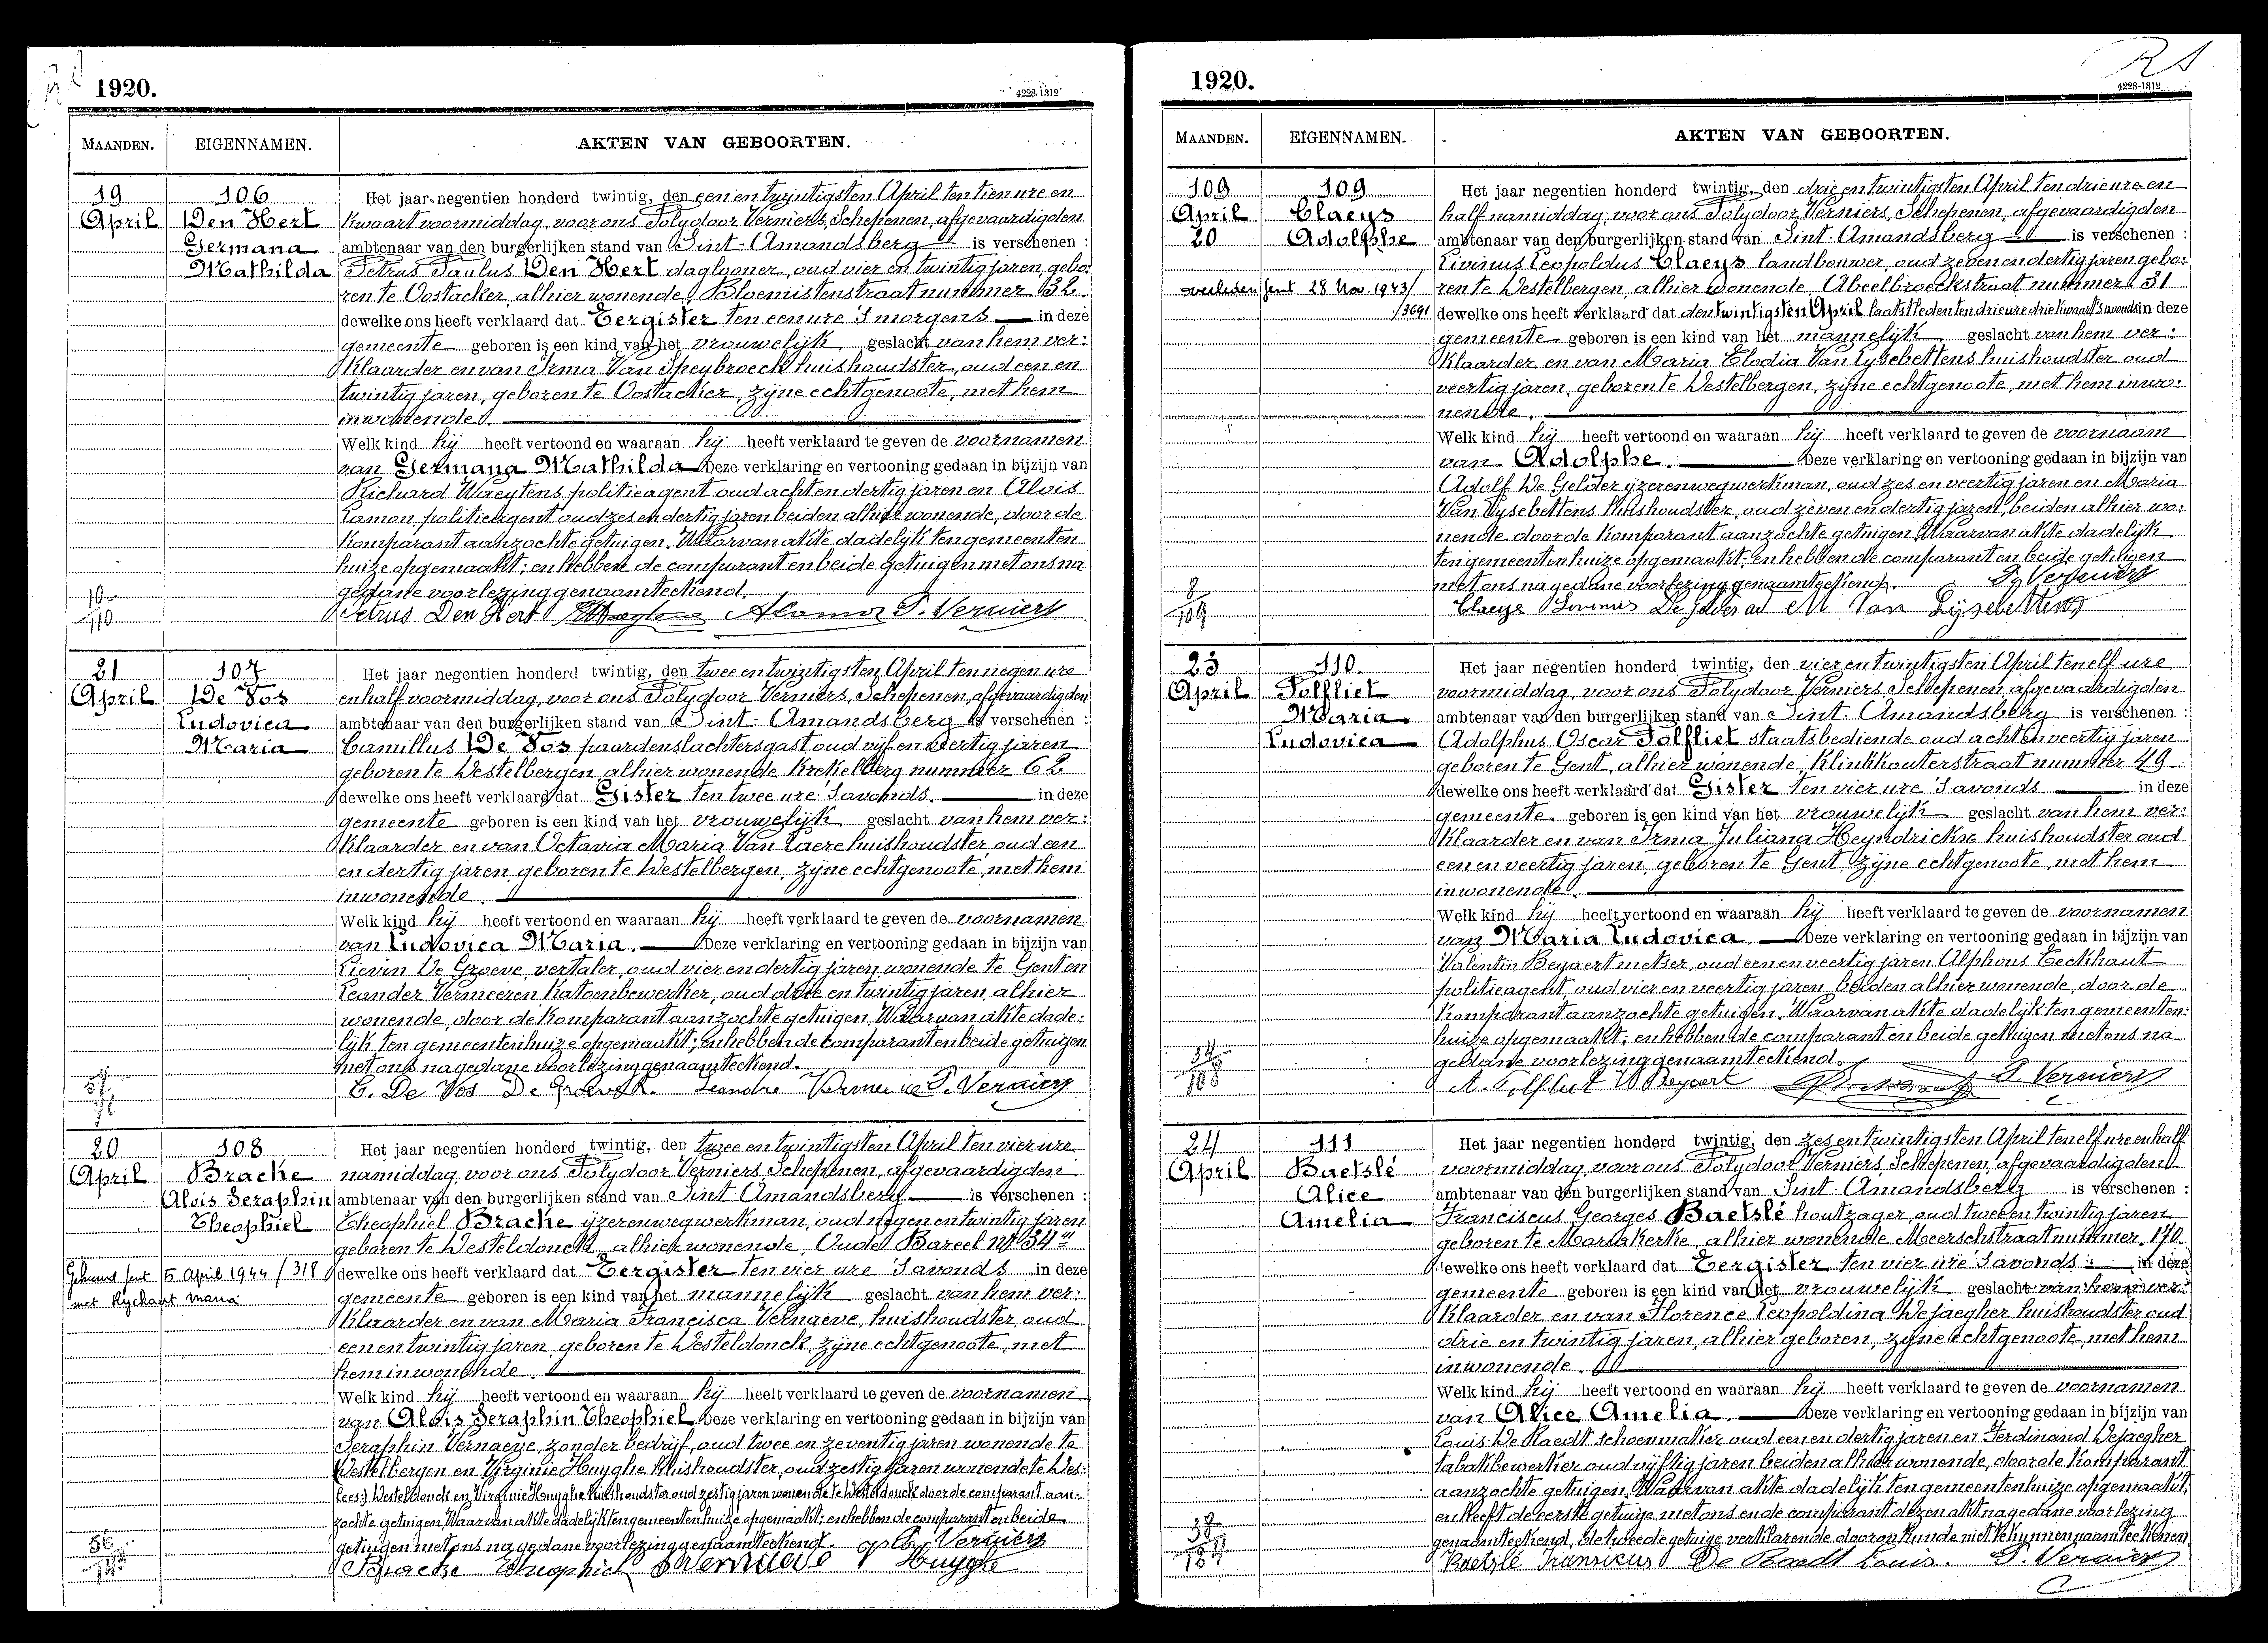 1920.
4228-1312
MAANDEN.
EIGENNAMEN.
AKTEN VAN GEBOORTEN.
19
April
106
Den Hert
Germana
Mathilda
Het jaar negentien honderd twintig, den een en twintigsten April ten tien ure en
kwaart voormiddag, voor ons Polydoor Verniers, Schepenen, afgevaardigden
ambtenaar van den burgerlijken stand van Sint-Amandsberg is verschenen :
Petrus Paulus Den Hert daglooner, oud vier en twintig jaren, gebo:
ren te Oostacker, alhier wonende, Bloemistenstraat nummer 32.
dewelke ons heeft verklaard dat Eergister ten een ure 's morgens in deze
gemeente geboren is een kind van het vrouwelijk geslacht van hem ver:
klaarder en van Irma Van Speybroeck huishoudster, oud een en
twintig jaren, geboren te Oostacker, zijne echtgenoote, met hem
inwonende.
Welk kind hij heeft vertoond en waaraan hij heeft verklaard te geven de voornamen
van Germana Mathilda Deze verklaring en vertooning gedaan in bijzijn van
Richard Waeytens politieagent oud acht en dertig jaren en Alois
Lamon politieagent oud zes en dertig jaren beiden alhier wonende, door de
komparant aanzochte getuigen. Waarvan akte dadelijk ten gemeenten
huize opgemaakt; en hebben de comparant en beide getuigen met ons na
gedane voorlezing genaamteekend.
10
110
Petrus Den Hert ALamon P. Verniers
21
April
107
De Vos
Ludovica
Maria
Het jaar negentien honderd twintig, den twee en twintigsten April ten negen ure
en half voormiddag, voor ons Polydoor Verniers, Schepenen, afgevaardigden
ambtenaar van den burgerlijken stand van Sint-Amandsberg is verschenen :
Camillus De Vos paardenslachtersgast oud vijf en veertig jaren
geboren te Destelbergen alhier wonende Krekelberg nummer 62
dewelke ons heeft verklaard dat Gister ten twee ure 's avonds. in deze
gemeente geboren is een kind van het vrouwelijk geslacht van hem ver:
klaarder en van Octavia Maria Van Laere huishoudster, oud een
en dertig jaren, geboren te Destelbergen, zijne echtgenoote, met hem
inwonende.
Welk kind hij heeft vertoond en waaraan hij heeft verklaard te geven de voornamen
van Ludovica Maria. Deze verklaring en vertooning gedaan in bijzijn van
Lievin De Groeve, vertaler, oud vier en dertig jaren, wonende te Gent en
Leander Vermeeren, katoenbewerker, oud drie en twintig jaren, alhier
wonende, door de komparant aanzochte getuigen. Waarvan akte dade:
lijk ten gemeentenhuize opgemaakt; en hebben de comparant en beide getuigen
met ons na gedane voorlezing genaamteekend.
C. De Vos Leandre P. Verniers
20
April
108
Bracke
Alois Seraphin
Theophiel
Gehuwd Gent 5 April 1944 / 318
met Ryckaert Maria
Het jaar negentien honderd twintig, den twee en twintigsten April ten vier ure
namiddag, voor ons Polydoor Verniers, Schepenen, afgevaardigden
ambtenaar van den burgerlijken stand van Sint-Amandsberg is verschenen :
Theophiel Bracke ijzerenwegwerkman, oud negen en twintig jaren
geboren te Desteldonck, alhier wonende, Oude Bareel Nr 34
dewelke ons heeft verklaard dat Eergister ten vier ure 's avonds in deze
gemeente geboren is een kind van het mannelijk geslacht van hem ver:
klaarder en van Maria Francisca Vernaeve, huishoudster, oud
een en twintig jaren, geboren te Desteldonck, zijne echtgenoote, met
hem inwonende.
Welk kind hij heeft vertoond en waaraan hij heeft verklaard te geven de voornamen
van Alois Seraphin Theophiel Deze verklaring en vertooning gedaan in bijzijn van
Seraphin Vernaeve, zonder bedrijf, oud twee en zeventig jaren wonende te
Destelbergen en Virginie Huyghe huishoudster, oud zestig jaren wonende te Des:
(lees:) Desteldonck en Virginie Huyghe huishoudster oud zestig jaren wonende te Desteldonck door de comparant aan:
zochte getuigen, Waarvan akte dadelijk ten gemeentenhuize opgemaakt; en hebben de comparant en beide
getuigen met ons na gedane voorlezing genaamteekend. P. Verniers
Bracke Theophiel Vernaeve V Huyghe
1920.
4228-1312
MAANDEN.
EIGENNAMEN.
AKTEN VAN GEBOORTEN.
109
April
20
109
Claeys
Adolphe
overleden Gent 28 Nov. 1943/
/3691
Het jaar negentien honderd twintig, den drie en twintigsten April ten drie ure en
half namiddag, voor ons Polydoor Verniers, Schepenen, afgevaardigden
ambtenaar van den burgerlijken stand van Sint-Amandsberg is verschenen :
Livinus Leopoldus Claeys landbouwer, oud zeven en dertig jaren gebo:
ren te Destelbergen, alhier wonende, Abeelbroeckstraat nummer 31
dewelke ons heeft verklaard dat den twintigsten April laatstleden ten drie ure drie kwaart 's avonds in deze
gemeente geboren is een kind van het mannelijk geslacht van hem ver:
klaarder en van Maria Elodia Van Lysebettens huishoudster oud
veertig jaren, geboren te Destelbergen, zijne echtgenoote, met hem inwo:
nende.
Welk kind hij heeft vertoond en waaraan hij heeft verklaard te geven de voornaam
van Adolphe. Deze verklaring en vertooning gedaan in bijzijn van
Adolf De Gelder ijzerenwegwerkman, oud zes en veertig jaren en Maria
Van Lysebettens huishoudster, oud zeven en dertig jaren, beiden alhier wo:
nende door de komparant aanzochte getuigen. Waarvan akte dadelijk
ten gemeentenhuize opgemaakt; en hebben de comparant en beide getuigen
met ons na gedane voorlezing genaamteekend. P. Verniers
8
109
Claeys Livinus M Van Lijsebettens
23
April
110
Tolfliet
Maria
Ludovica
Het jaar negentien honderd twintig, den vier en twintigsten April ten elf ure
voormiddag, voor ons Polydoor Verniers, Schepenen, afgevaardigden
ambtenaar van den burgerlijken stand van Sint-Amandsberg is verschenen :
Adolphus Oscar Tolfliet staatsbediende oud acht en veertig jaren
geboren te Gent, alhier wonende, Klinkkouterstraat nummer 49
dewelke ons heeft verklaard dat Gister ten vier ure 's avonds in deze
gemeente geboren is een kind van het vrouwelijk geslacht van hem ver:
klaarder en van Irma Juliana Heyndrickse huishoudster oud
een en veertig jaren, geboren te Gent, zijne echtgenoote, met hem
inwonende.
Welk kind hij heeft vertoond en waaraan hij heeft verklaard te geven de voornamen
van Maria Ludovica. Deze verklaring en vertooning gedaan in bijzijn van
Valentin Beyaert metser, oud een en veertig jaren Alphons Eeckhaut
politieagent, oud vier en veertig jaren beiden alhier wonende, door de
komparant aanzochte getuigen. Waarvan akte dadelijk ten gemeenten:
huize opgemaakt; en hebben de comparant en beide getuigen met ons na
gedane voorlezing genaamteekend.
34
108
A. Tolfliet V Beyaert P. Verniers
24
April
111
Baetslé
Alice
Amelia
Het jaar negentien honderd twintig, den zes en twintigsten April ten elf ure en half
voormiddag, voor ons Polydoor Verniers, Schepenen, afgevaardigden
ambtenaar van den burgerlijken stand van Sint-Amandsberg is verschenen :
Franciscus Georges Baetslé houtzager, oud twee en twintig jaren
geboren te Mariakerke, alhier wonende Meerschstraat nummer 170.
dewelke ons heeft verklaard dat Eergister ten vier ure 's avonds in deze
gemeente geboren is een kind van het vrouwelijk geslacht van hem ver:
klaarder en van Florence Leopoldina Dejaegher huishoudster oud
drie en twintig jaren, alhier geboren, zijne echtgenoote, met hem
inwonende.
Welk kind hij heeft vertoond en waaraan hij heeft verklaard te geven de voornamen
van Alice Amelia. Deze verklaring en vertooning gedaan in bijzijn van
Louis De Raedt schoenmaker oud een en dertig jaren en Ferdinand Dejaegher
tabakbewerker oud vijftig jaren beiden alhier wonende, door de komparant
aanzochte getuigen. Waarvan akte dadelijk ten gemeentenhuize opgemaakt;
en heeft de eerste getuige met ons en de comparant dezen akt na gedane voorlezing
genaamteekend, de tweede getuige verklarende door onkunde niet te kunnen naamteekenen
Baetslé Fransicus De Raedt Louis. P. Verniers